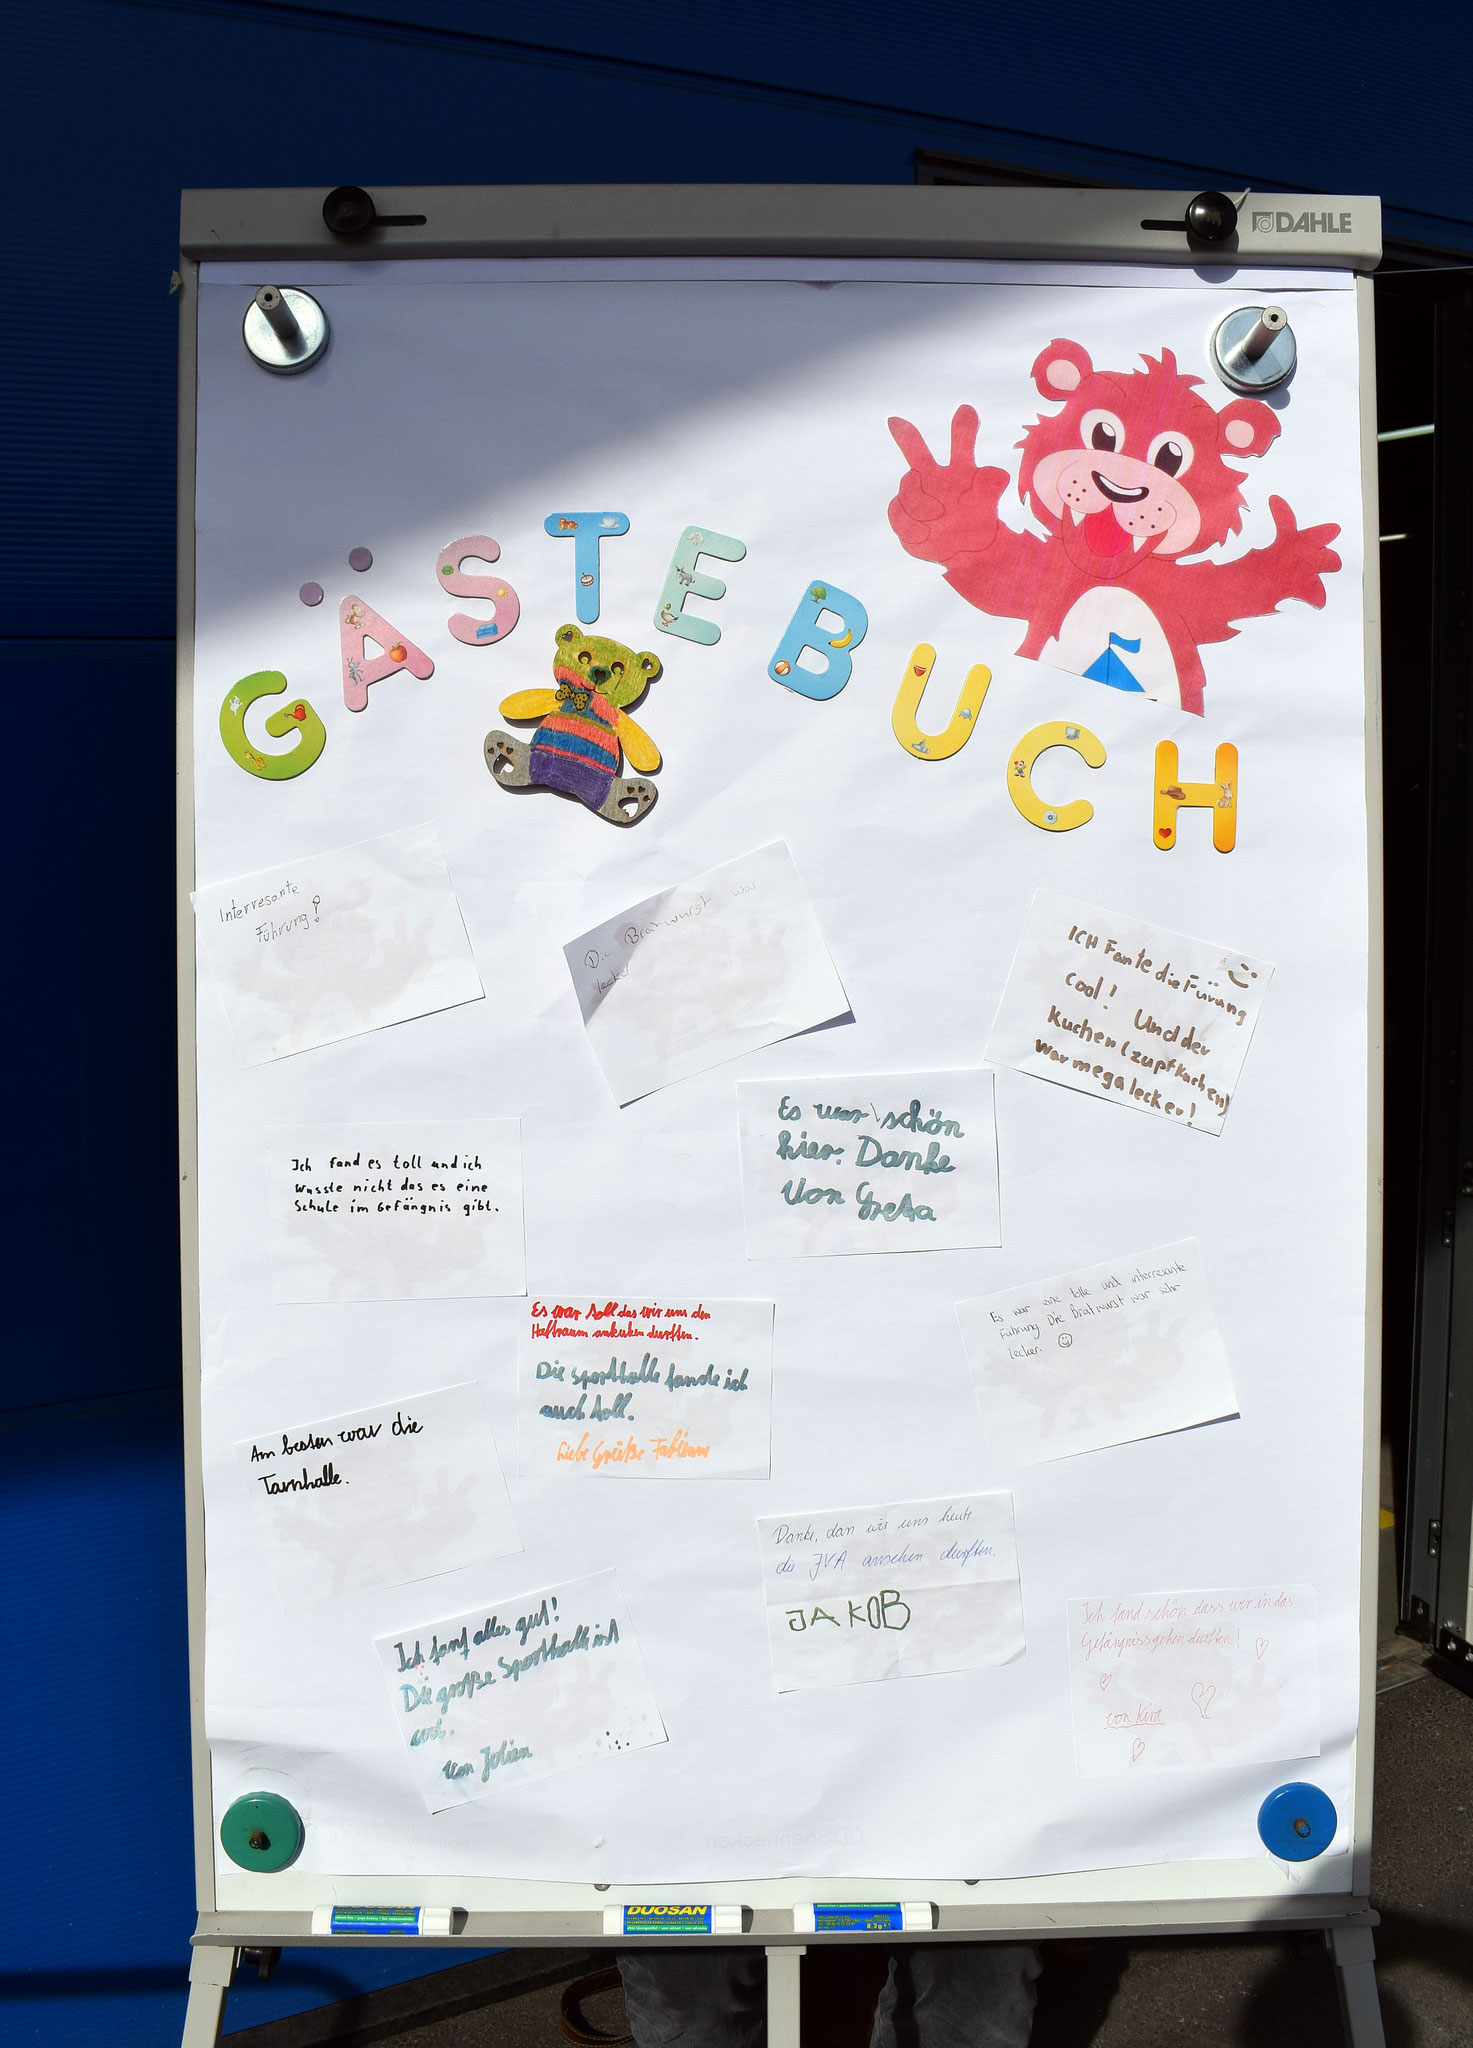 DAHLE
GÄSTEBUCH
Interresante
Führung!
Die Bratwurst war
lecker
ICH Fante die Fürung
cool! Und der
Kuchen (zupfkuchen)
war mega lecker!
Es war schön
hier. Danke
Von Greta
Ich fand es toll und ich
wusste nicht das es eine
Schule im Gefängnis gibt.
Es war toll das wir uns den
Haftraum ankuken durften.
Die sporthalle fande ich
auch toll.
Liebe Grüße Fabienne
Es war eine tolle und interresante
Führung. Die Bratwurst war sehr
lecker.
Am besten war die
Turnhalle.
Danke, dass wir uns heute
die JVA ansehen durften.
JAKOB
Ich fand schön dass wir in das
Gefängniss gehen durften!
von Kira
Ich fanf alles gut!
Die große Sporthalle ist
von
Soennecken
DUOSAN
8,2g